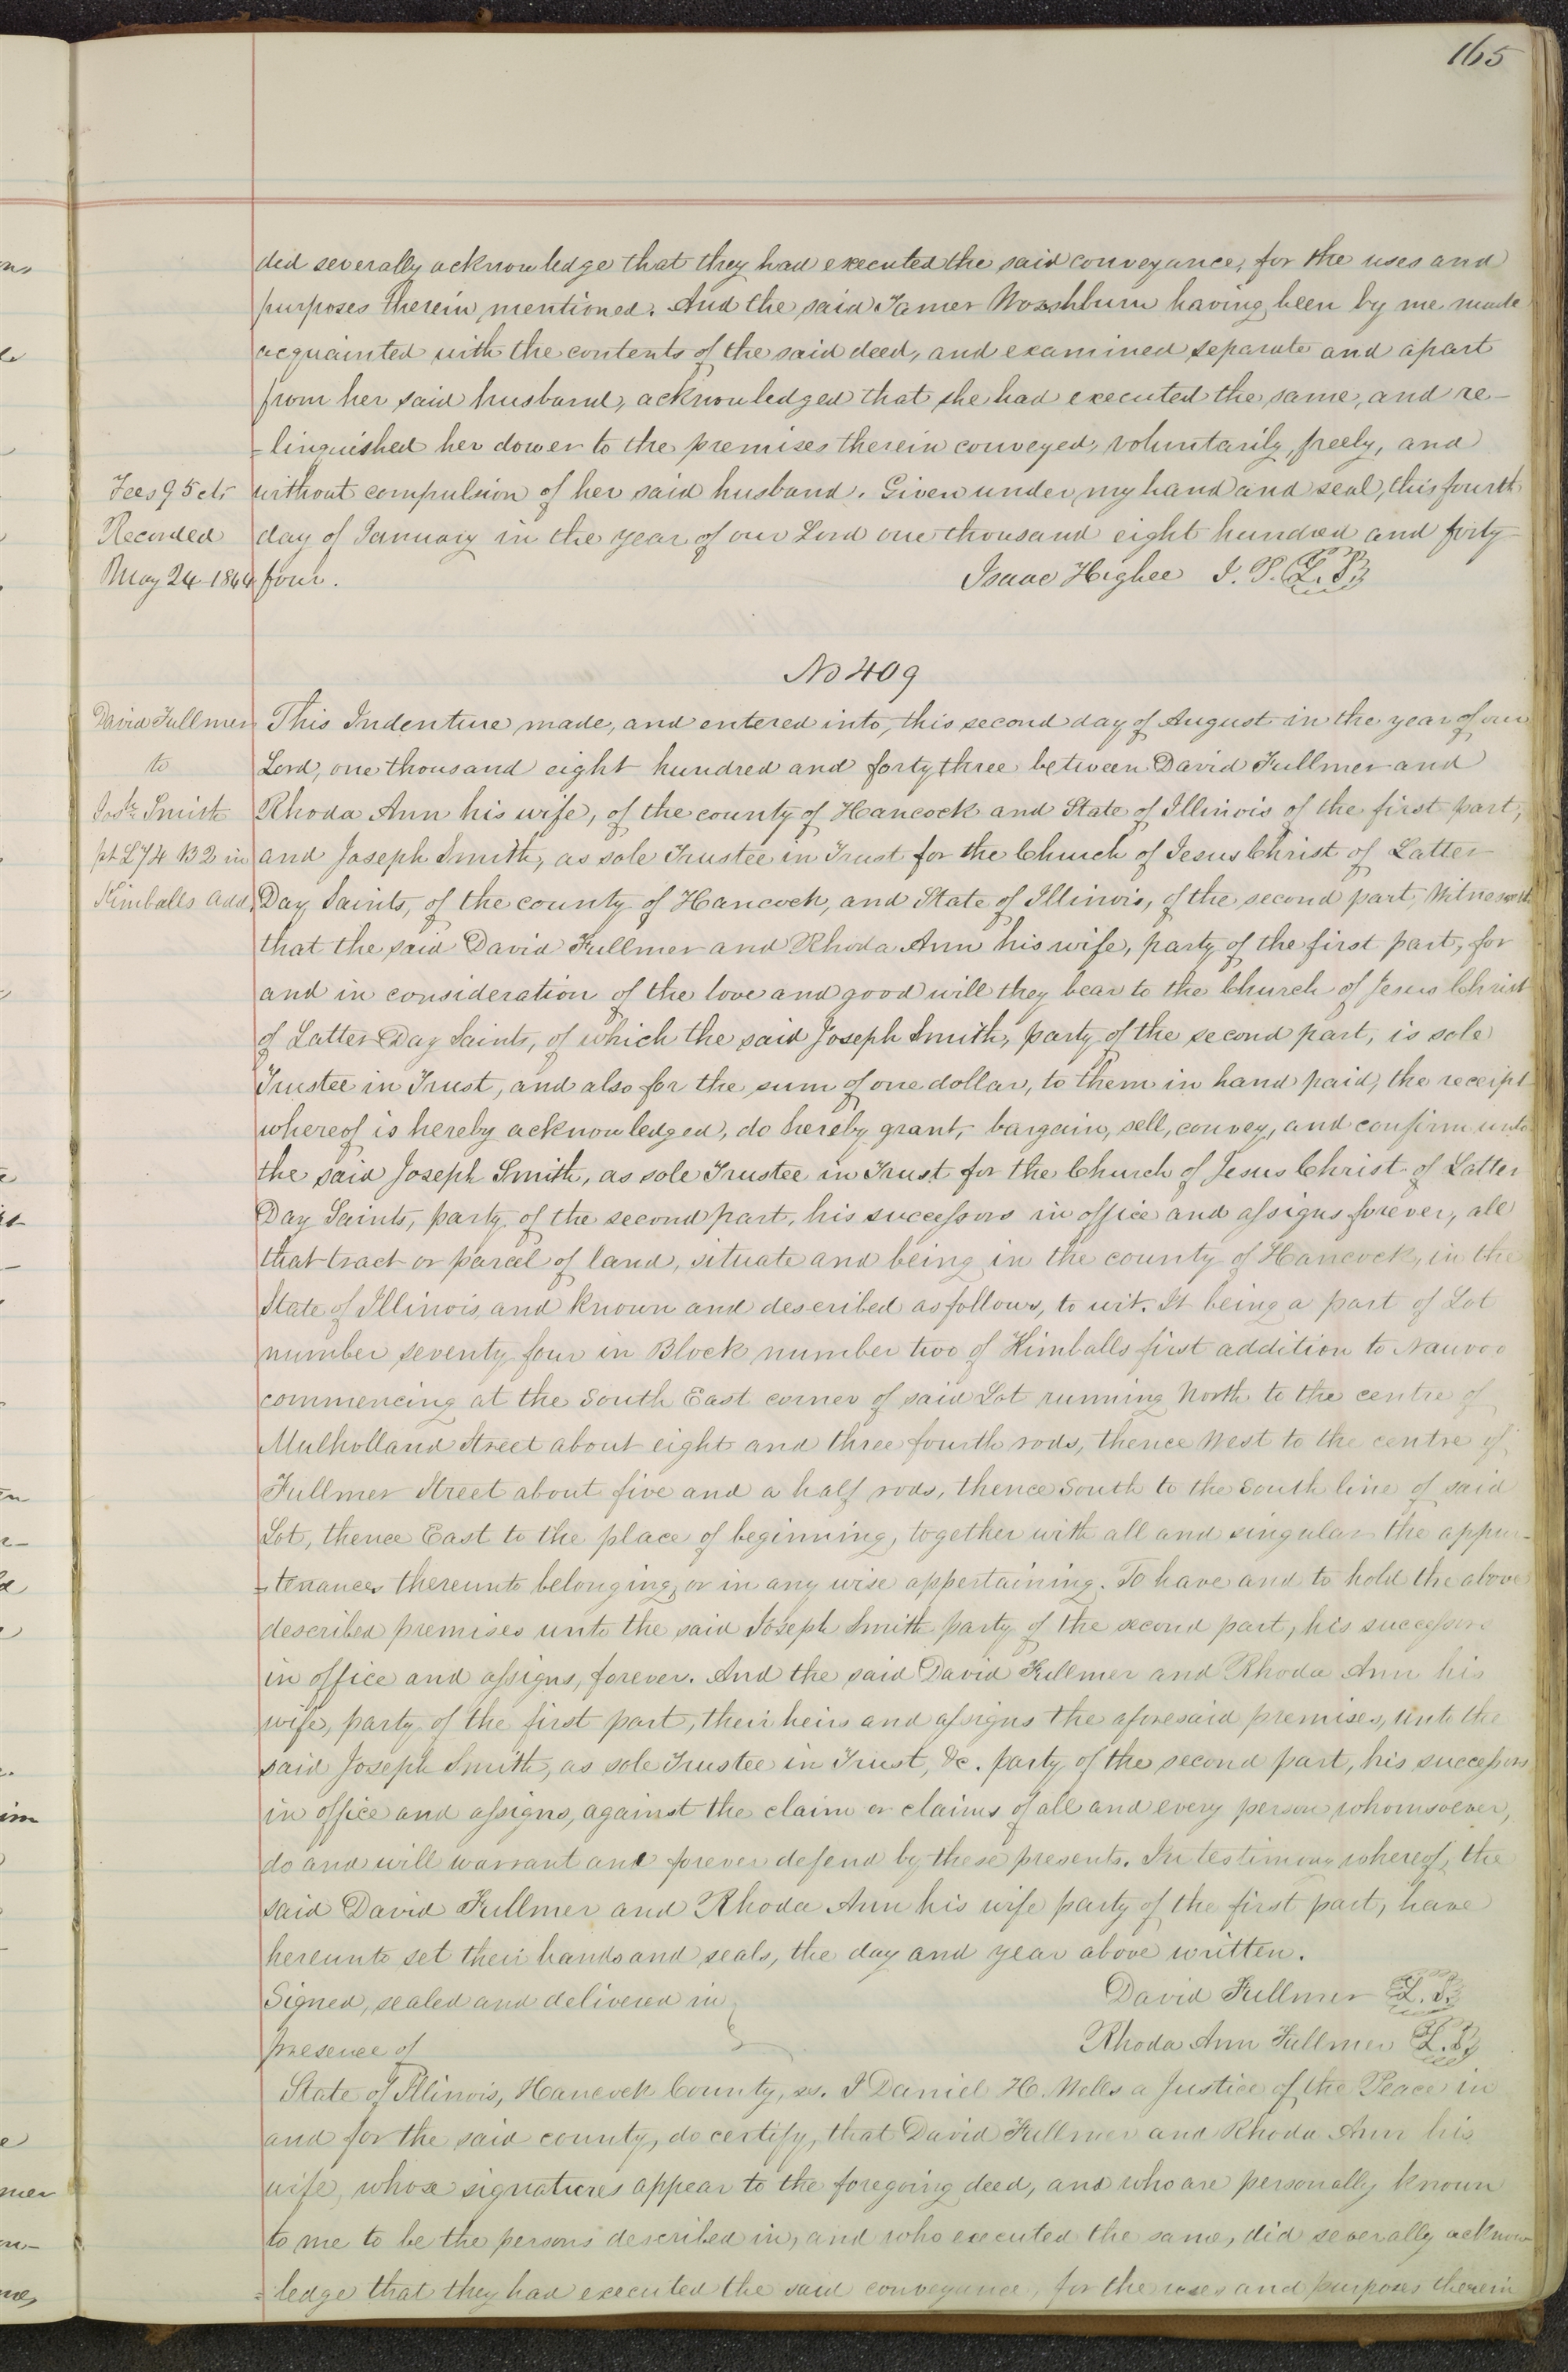 165
did severally acknowledge that they had executed the said conveyance, for the uses and
purposes therein mentioned. And the said Tamer Washburn having been by me made
acquainted with the contents of the said deed, and examined separate and apart
from her said husband, acknowledged that she had executed the same, and re-
=linquished her dower to the premises therein conveyed, voluntarily, freely, and
Fees 95 cts without compulsion of her said husband. Given under my hand and seal, this fourth
Recorded day of January in the year of our Lord one thousand eight hundred and forty
May 24 1844 four. Isaac Higbee J. P. L. S.
No 409
David Fullmer This Indenture made, and entered into, this second day of August in the year of our
to Lord, one thousand eight hundred and forty three between David Fullmer and
Josh Smith Rhoda Ann his wife, of the county of Hancock and State of Illinois of the first part,
pt L74 B2 in and Joseph Smith, as sole Trustee in Trust for the Church of Jesus Christ of Latter
Kimballs Add. Day Saints, of the county of Hancock, and State of Illinois, of the second part, Witnesseth
that the said David Fullmer and Rhoda Ann his wife, party of the first part, for
and in consideration of the love and good will they bear to the Church of Jesus Christ
of Latter Day Saints, of which the said Joseph Smith, party of the second part, is sole
Trustee in Trust, and also for the sum of one dollar, to them in hand paid, the receipt
whereof is hereby acknowledged, do hereby grant, bargain, sell, convey, and confirm unto
the said Joseph Smith, as sole Trustee in Trust for the Church of Jesus Christ of Latter
Day Saints, party of the second part, his successors in office and assigns forever, all
that tract or parcel of land, situate and being in the county of Hancock, in the
State of Illinois, and known and described as follows, to wit. It being a part of Lot
number seventy four in Block number two of Kimballs first addition to Nauvoo
commencing at the South East corner of said Lot running North to the centre of
Mulholland Street about eight and three fourth rods, thence West to the centre of
Fullmer Street about five and a half rods, thence South to the South line of said
Lot, thence East to the place of beginning, together with all and singular the appur-
=tenances thereunto belonging, or in any wise appertaining. To have and to hold the above
described premises unto the said Joseph Smith party of the second part, his successors
in office and assigns, forever. And the said David Fullmer and Rhoda Ann his
wife, party of the first part, their heirs and assigns the aforesaid premises, unto the
said Joseph Smith, as sole Trustee in Trust, &c. party of the second part, his successors
in office and assigns, against the claim or claims of all and every person whomsoever,
do and will warrant and forever defend by these presents. In testimony whereof, the
said David Fullmer and Rhoda Ann his wife party of the first part, have
hereunto set their hands and seals, the day and year above written.
Signed, sealed and delivered in David Fullmer L. S.
presence of Rhoda Ann Fullmer L. S.
State of Illinois, Hancock County, ss. I Daniel H. Wells a Justice of the Peace in
and for the said county, do certify, that David Fullmer and Rhoda Ann his
wife, whose signatures appear to the foregoing deed, and who are personally known
to me to be the persons described in, and who executed the same, did severally acknow
=ledge that they had executed the said conveyance, for the uses and purposes therein